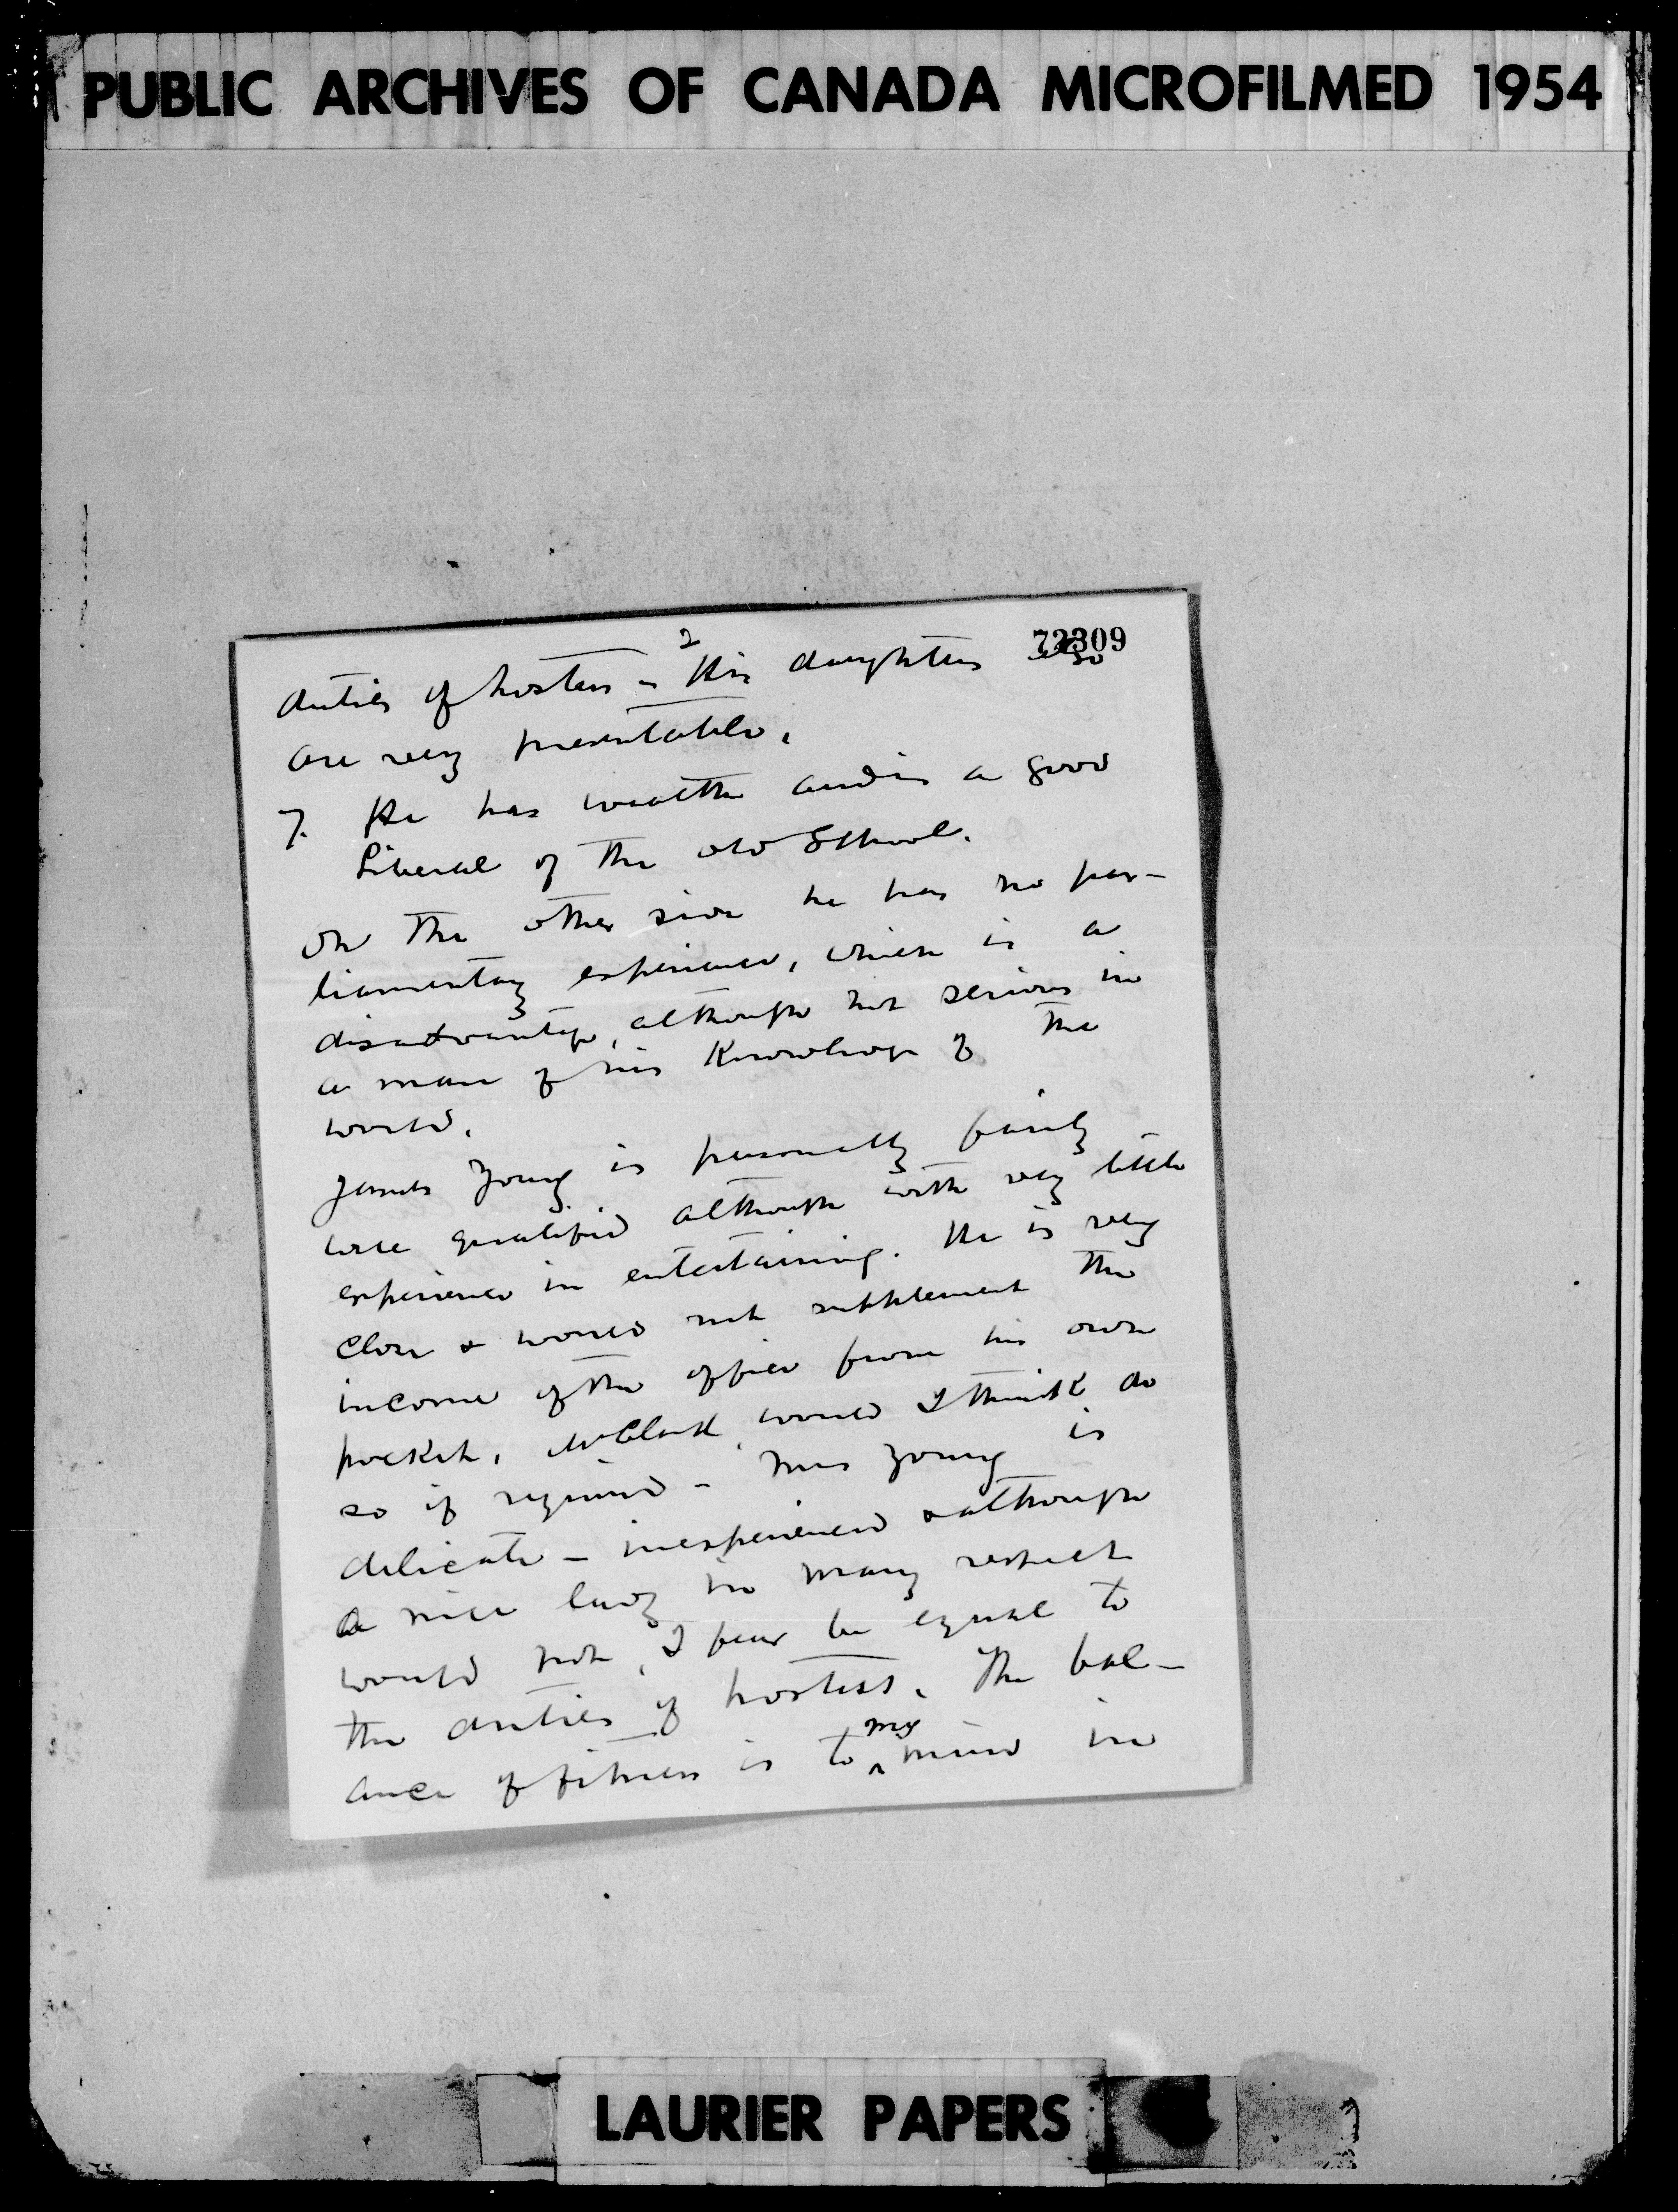 PUBLIC ARCHIVES OF CANADA MICROFILMED 1954
72309
2
duties of hostess – His daughters also
are very presentable.
7. He has wealth and is a good
Liberal of the old School.
On the other side he has no par-
liamentary experience, which is a
disadvantage, although not serious in
a man of his knowledge of the
world.
James Young is personally fairly
well qualified although with very little
experience in entertaining. He is very
close & would not supplement the
income of the office from his own
pocket. Mr Clark would I think do
so if required – Mrs Young is
delicate – inexperienced & although
a nice lady in many respects
would not, I fear be equal to
the duties of hostess. The bal-
ance of fitness is to my mind in
LAURIER PAPERS